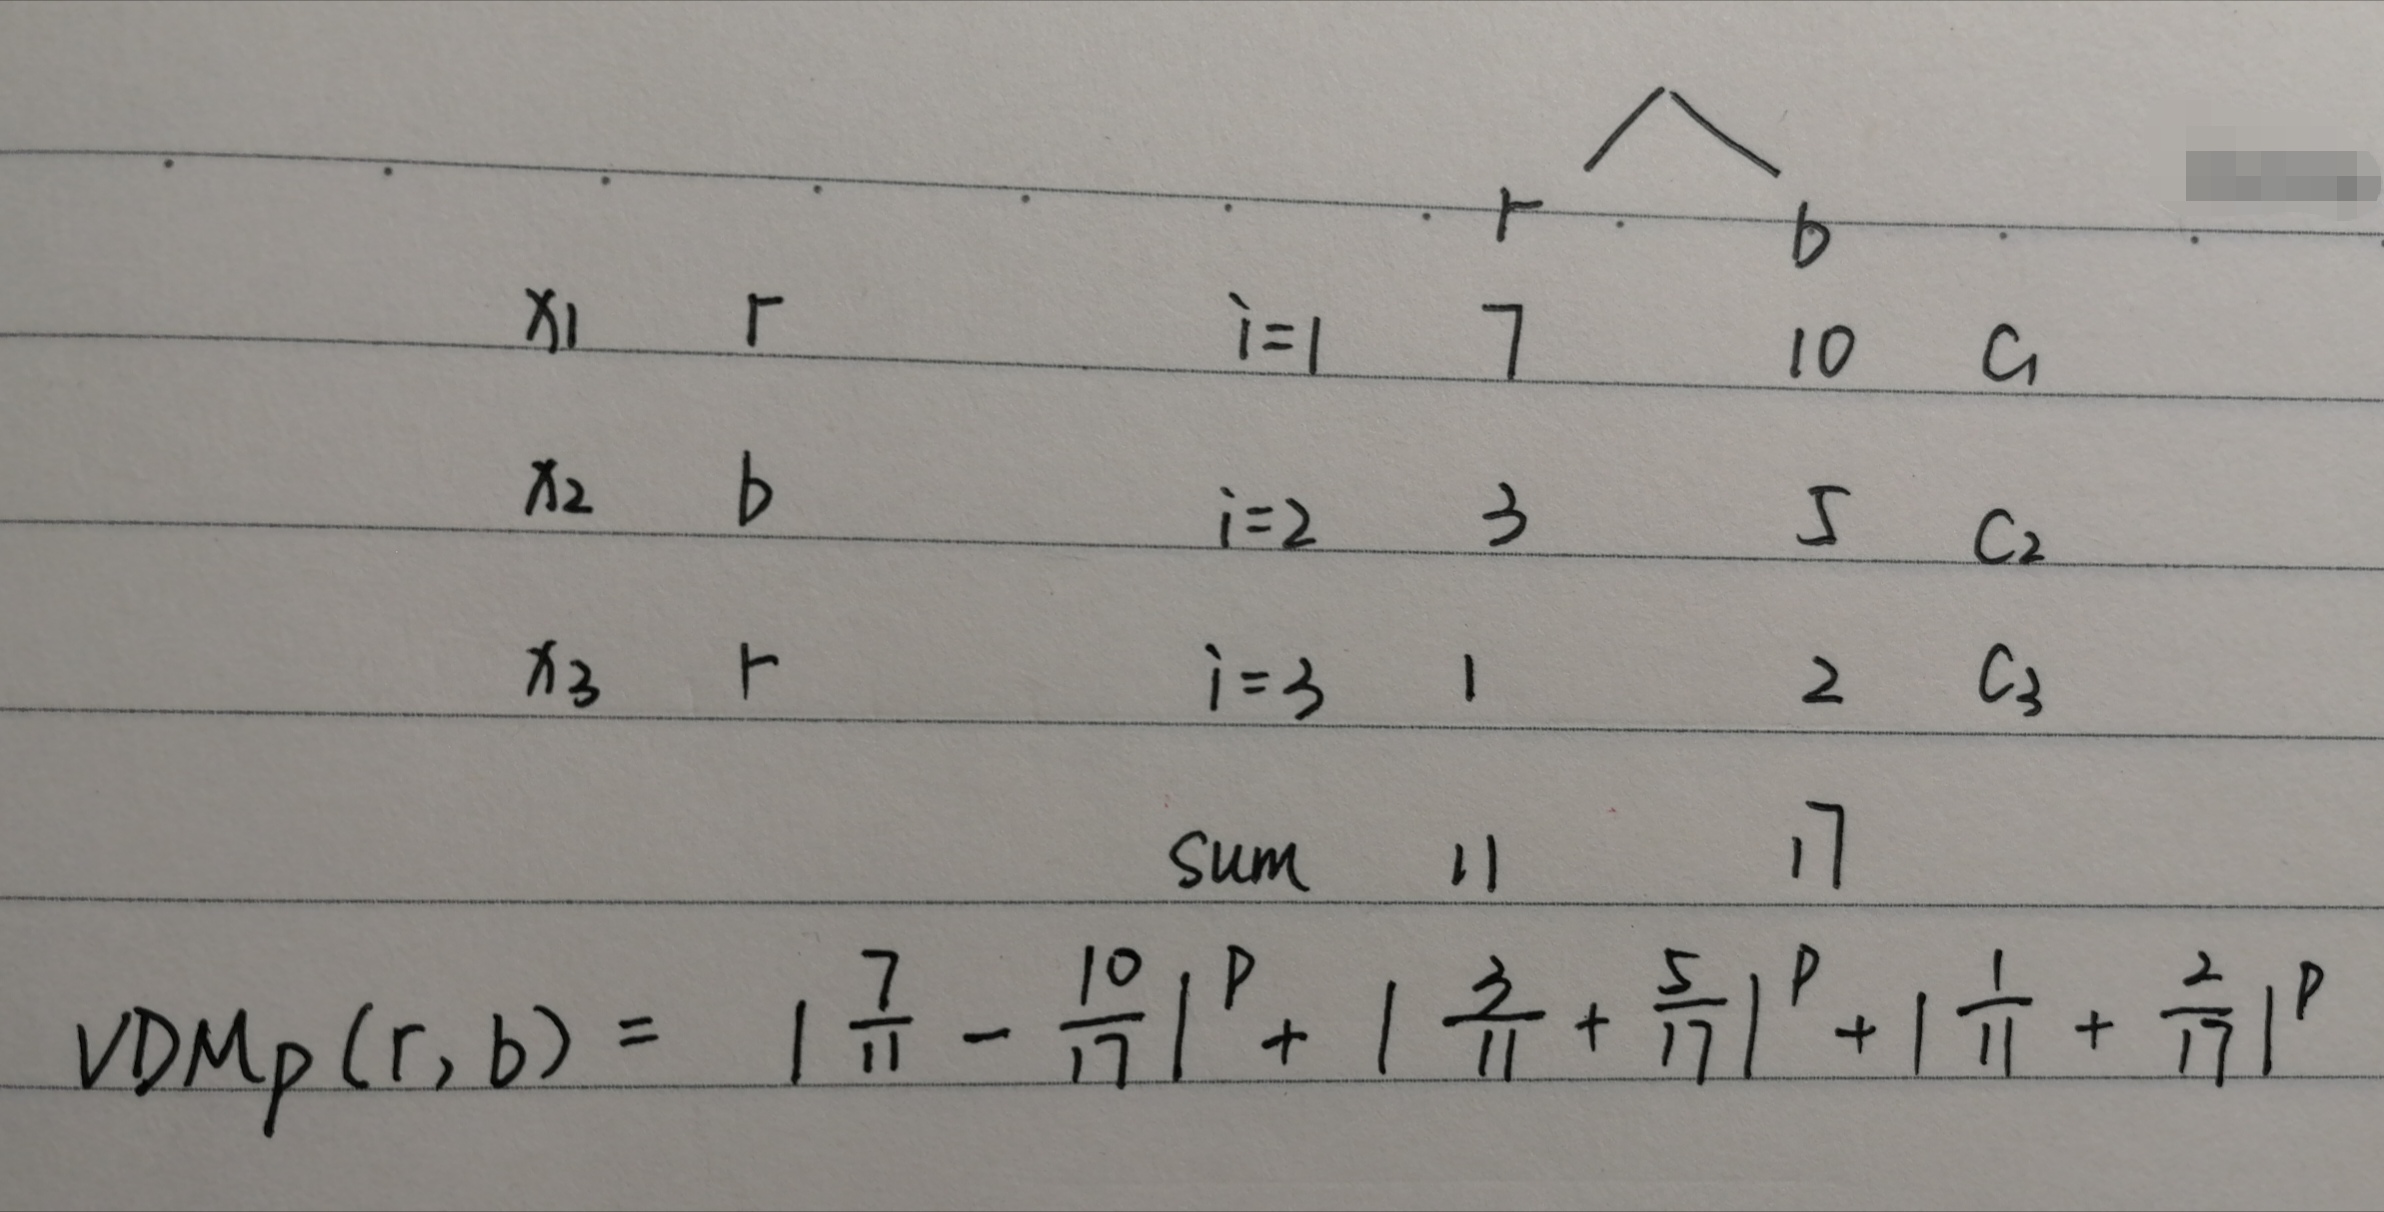 r b
x1 r i=1 7 10 C1
x2 b i=2 3 5 C2
x3 r i=3 1 2 C3
sum 11 17
VDMp(r,b) = |7/11 - 10/17|^p + |3/11 + 5/17|^p + |1/11 + 2/17|^p